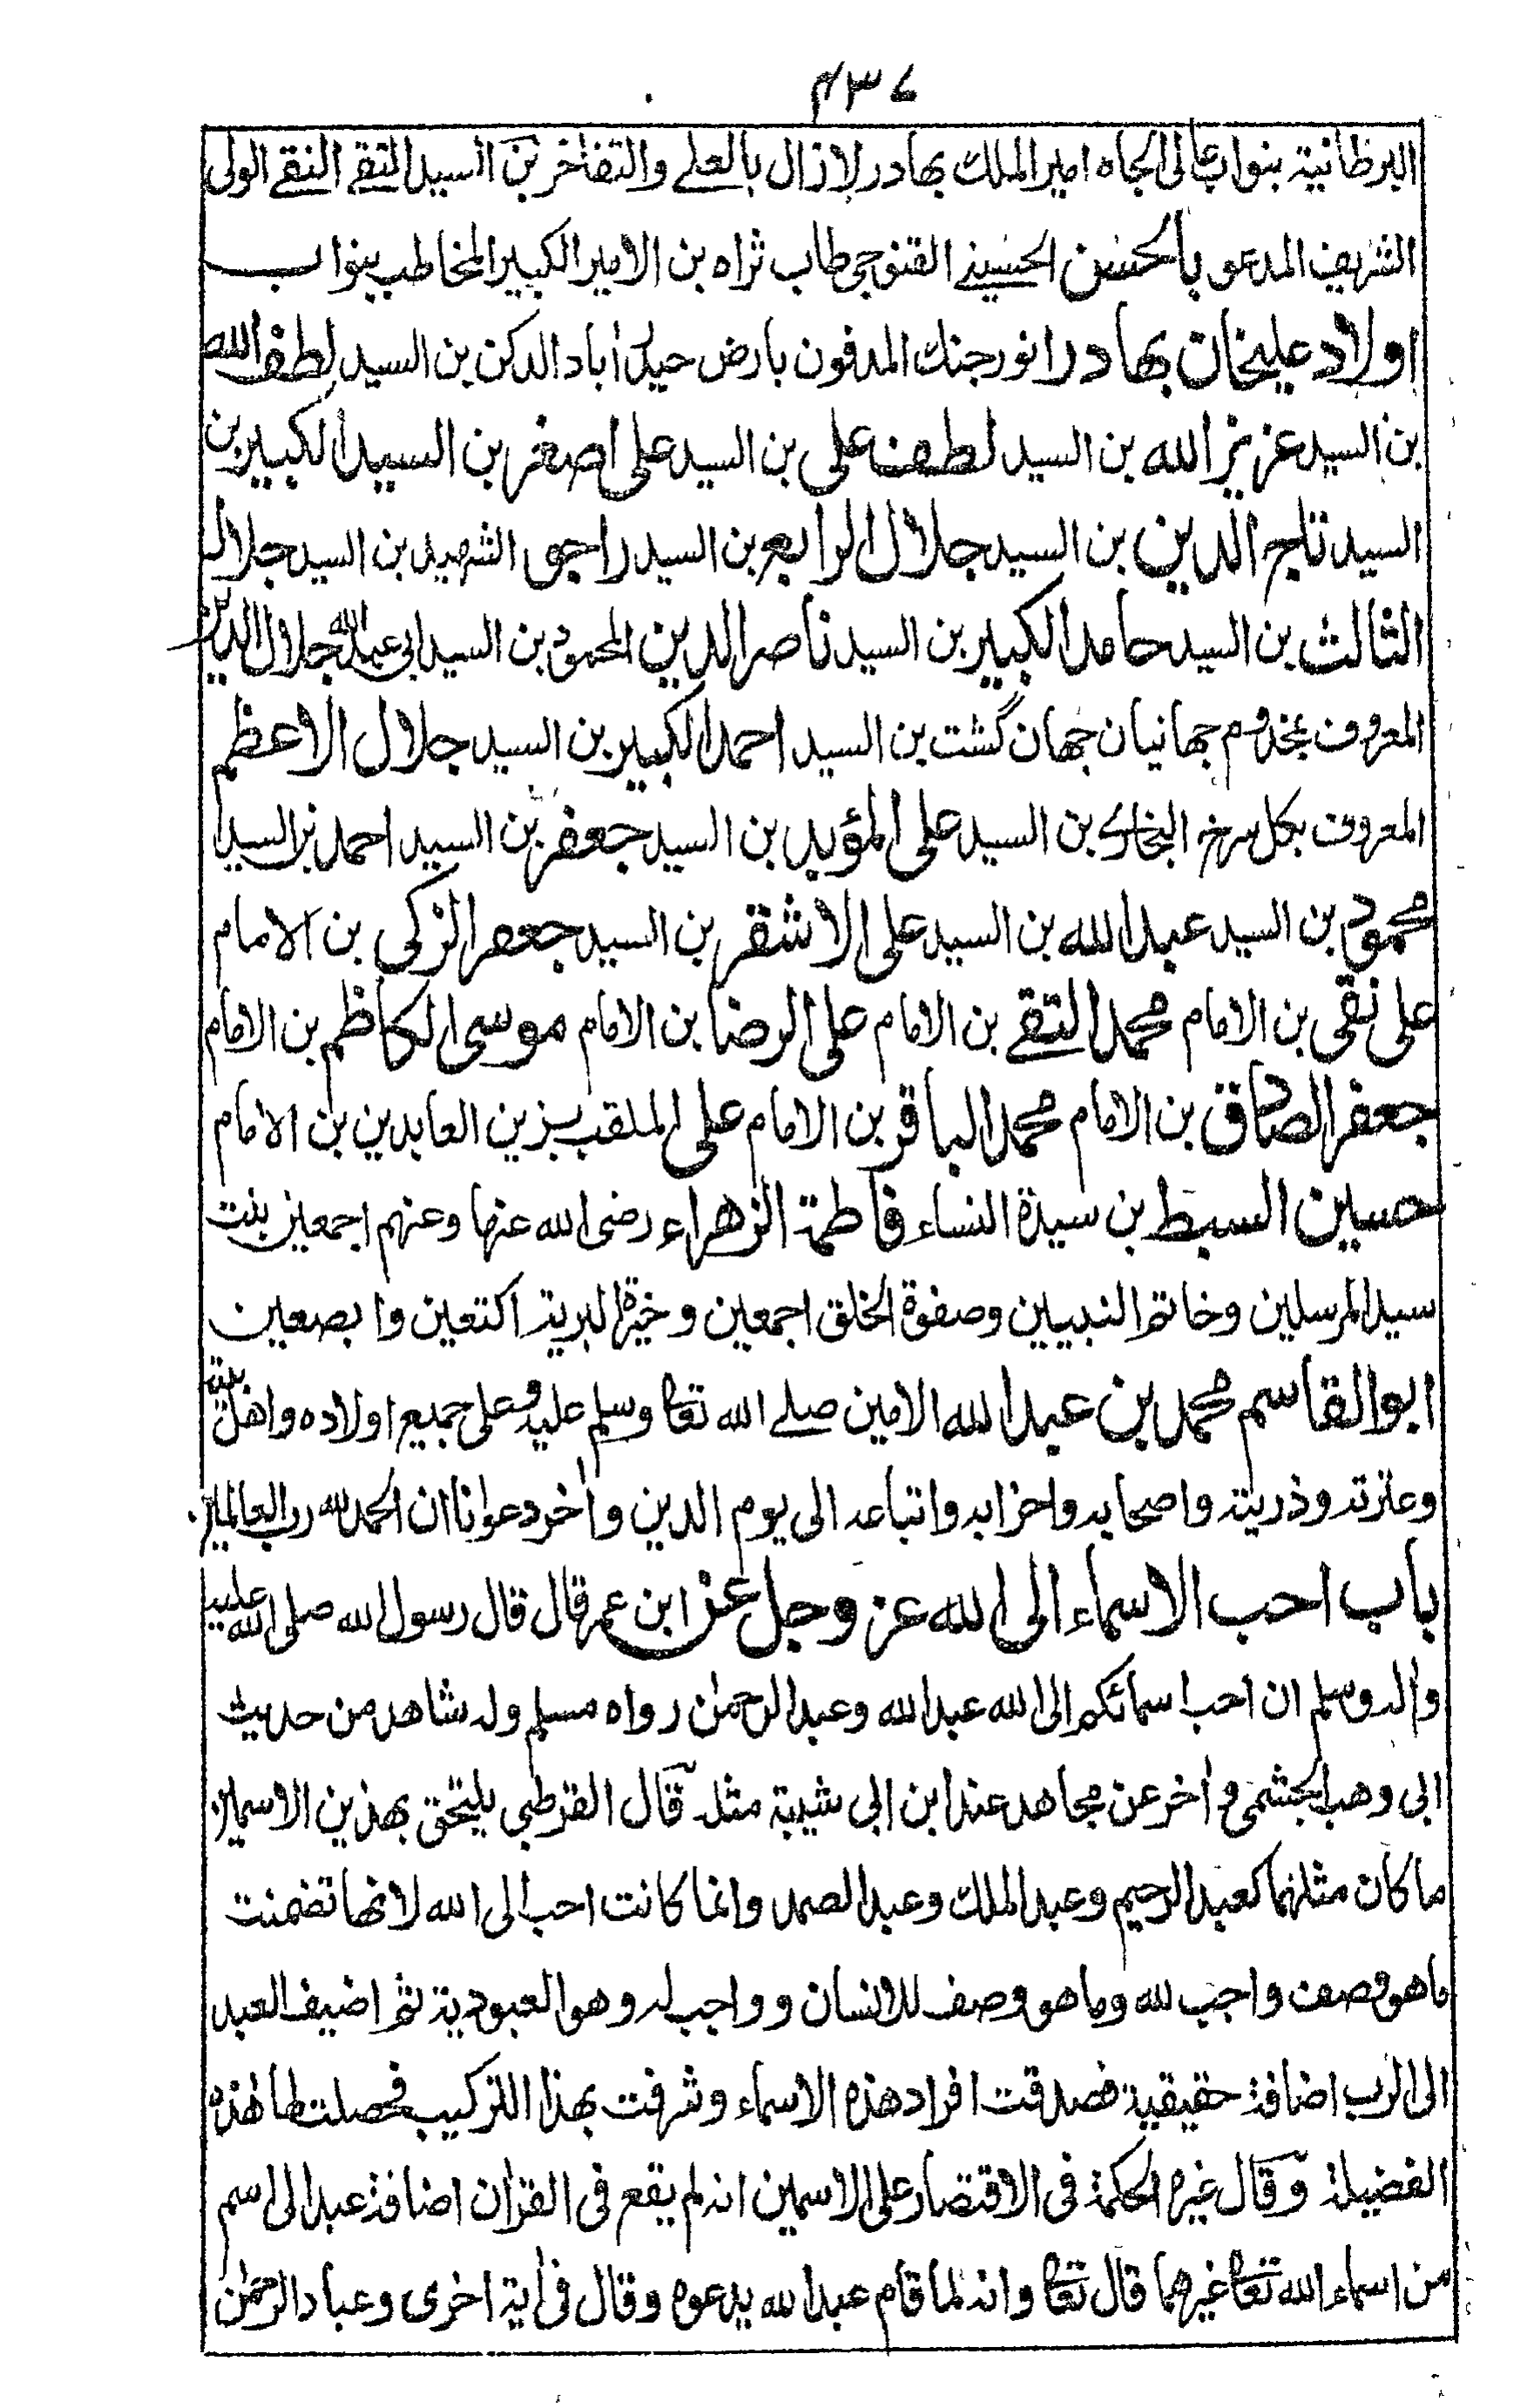 ٤٣٧
البرطانية بنواب عالى الجاه امير الملك بهادر لازال بالعلے والتفاخر بن السيد التقے النقے الولى
الشريف المدعو بالحسن الحسينے القنوجى طاب ثراه بن الامير الكبير المخاطب بنواب
اولاد عليخان بهادر انور جنك المدفون بارض حيدر اباد الدكن بن السيد لطف الله
بن السيد عزيز الله بن السيد لطف على بن السيد على اصغر بن السيد الكبير بن
السيد تاج الدين بن السيد جلال الرابع بن السيد راجى الشهيد بن السيد جلال
الثالث بن السيد حامد الكبير بن السيد ناصر الدين المحمود بن السيد ابى عبد الله جلال الدين
المعروف بمخدوم جهانيان جهان گشت بن السيد احمد الكبير بن السيد جلال الاعظم
المعروف بكل سرخ البخارى بن السيد على المؤيد بن السيد جعفر بن السيد احمد بن السيد
محمود بن السيد عبد الله بن السيد على الاشقر بن السيد جعفر الزكى بن الامام
على نقى بن الامام محمد التقے بن الامام على الرضا بن الامام موسى الكاظم بن الامام
جعفر الصادق بن الامام محمد الباقر بن الامام على الملقب بزين العابدين بن الامام
حسين السبط بن سيدة النساء فاطمة الزهراء رضى الله عنها وعنهم اجمعين بنت
سيد المرسلين وخاتم النبيين وصفوة الخلق اجمعين وخيرة البرية اكتعين وابصعين
ابو القاسم محمد بن عبد الله الامين صلے الله تعا وسلم عليه وعلى جميع اولاده واهل بيته
وعترته وذريته واصحابه واحزابه واتباعه الى يوم الدين واٰخر دعوانا ان الحمد لله رب العالمين
باب احب الاسماء الى الله عز وجل عن ابن عمر قال قال رسول الله صلى الله عليه
واٰله وسلم ان احب اسمائكم الى الله عبد الله وعبد الرحمٰن رواه مسلم وله شاهد من حديث
ابى وهب الجشمى واٰخر عن مجاهد عند ابن ابى شيبة مثله قال القرطبى يلتحق بهذين الاسمين
ما كان مثلهما كعبد الرحيم وعبد الملك وعبد الصمد وانما كانت احب الى الله لانها تضمنت
ما هو وصف واجب لله وما هو وصف للانسان وواجب له وهو العبودية ثم اضيف العبد
الى الرب اضافة حقيقية فصدقت افراد هذه الاسماء وشرفت بهذا التركيب فحصلت لها هٰذه
الفضيلة وقال غيره الحكمة فى الاقتصار على الاسمين انه لم يقع فى القراٰن اضافة عبد الى اسم
من اسماء الله تعا غيرهما قال تعا وانه لما قام عبد الله يدعوه وقال فى اٰية اخرى وعباد الرحمٰن